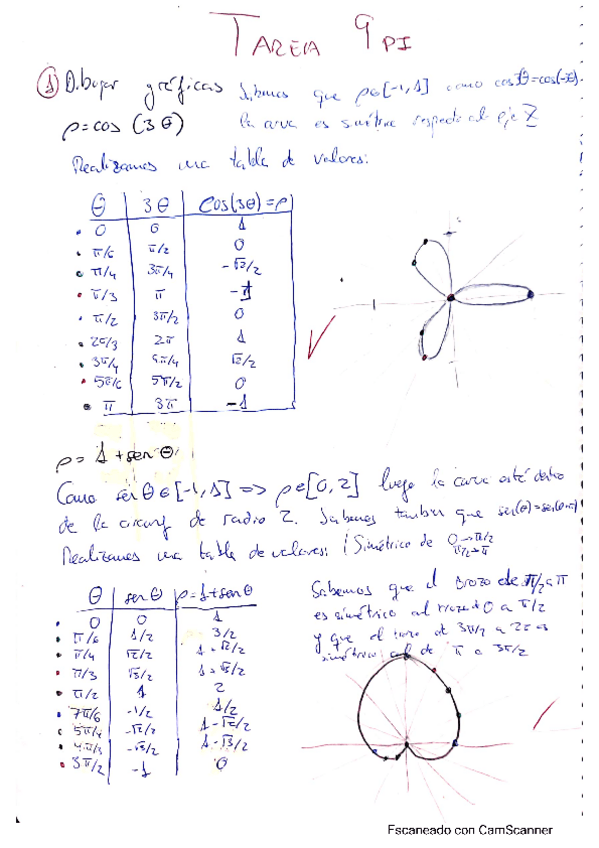 TAREA 9 PI
① Dibujar gráficas Sabemos que ρ∈[-1,1] como cos =cos(-
ρ=cos (3θ) la curva es simétrica respecto al eje
Realizamos una tabla de valores:
θ 3θ Cos(3θ)=ρ
0 0 1
π/6 π/2 0
π/4 3π/4 -√2/2
π/3 π -1
π/2 3π/2 0
2π/3 2π 1
3π/4 9π/4 √2/2
5π/6 5π/2 0
π 3π -1
ρ= 1+sen θ
Como sen θ∈[-1,1] => ρ∈[0,2] luego la curva está dentro
de la circunf de radio 2. Sabemos también que sen(θ)=sen(
Realizamos una tabla de valores: Simétrico de 0→π/2
π/2→π
θ sen θ ρ=1+sen θ
0 0 1
π/6 1/2 3/2
π/4 √2/2 1+√2/2
π/3 √3/2 1+√3/2
π/2 1 2
7π/6 -1/2 1/2
5π/4 -√2/2 1-√2/2
4π/3 -√3/2 1-√3/2
3π/2 -1 0
Sabemos que el trozo de π/2 a π
es simétrico al trozo 0 a π/2
y que el trozo de 3π/2 a 2π es
simétrico al de π a 3π/2
Escaneado con CamScanner